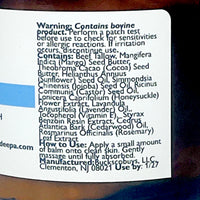 Warning: Contains bovine
product. Perform a patch test
before use to check for sensitivities
or allergic reactions. If irritation
occurs, discontinue use.
Contains: Beef Tallow, Mangifera
Indica (Mango) Seed Butter,
Theobroma Cacao (Cocoa) Seed
Butter, Helianthus Annuus
(Sunflower) Seed Oil, Simmondsia
Chinensis (Jojoba) Seed Oil, Ricinus
Communis (Castor) Seed Oil,
Lonicera Caprifolium (Honeysuckle)
Flower Extract, Lavandula
Angustifolia (Lavender) Oil,
Tocopherol (Vitamin E), Styrax
Benzoin Resin Extract, Cedrus
Atlantica Bark (Cedarwood) Oil,
Rosmarinus Officinalis (Rosemary)
Leaf Extract
How to Use: Apply a small amount
of balm onto clean skin. Gently
massage until fully absorbed.
Manufactured: Buckscouys, LLC
Clementon, NJ 08021 Use by: 1/27
H
deepa.com